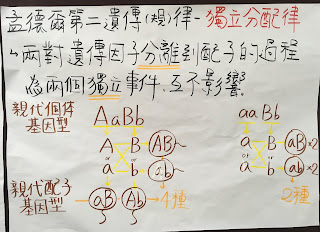 孟德爾第二遺傳(規)律-獨立分配律
↳兩對遺傳因子分離到配子的過程
為兩個獨立事件，互不影響。
親代個體
基因型
AaBb
aaBb
A B AB
a b ab
a B aB×2
a b ab×2
親代配子
基因型
aB Ab →4種
2種